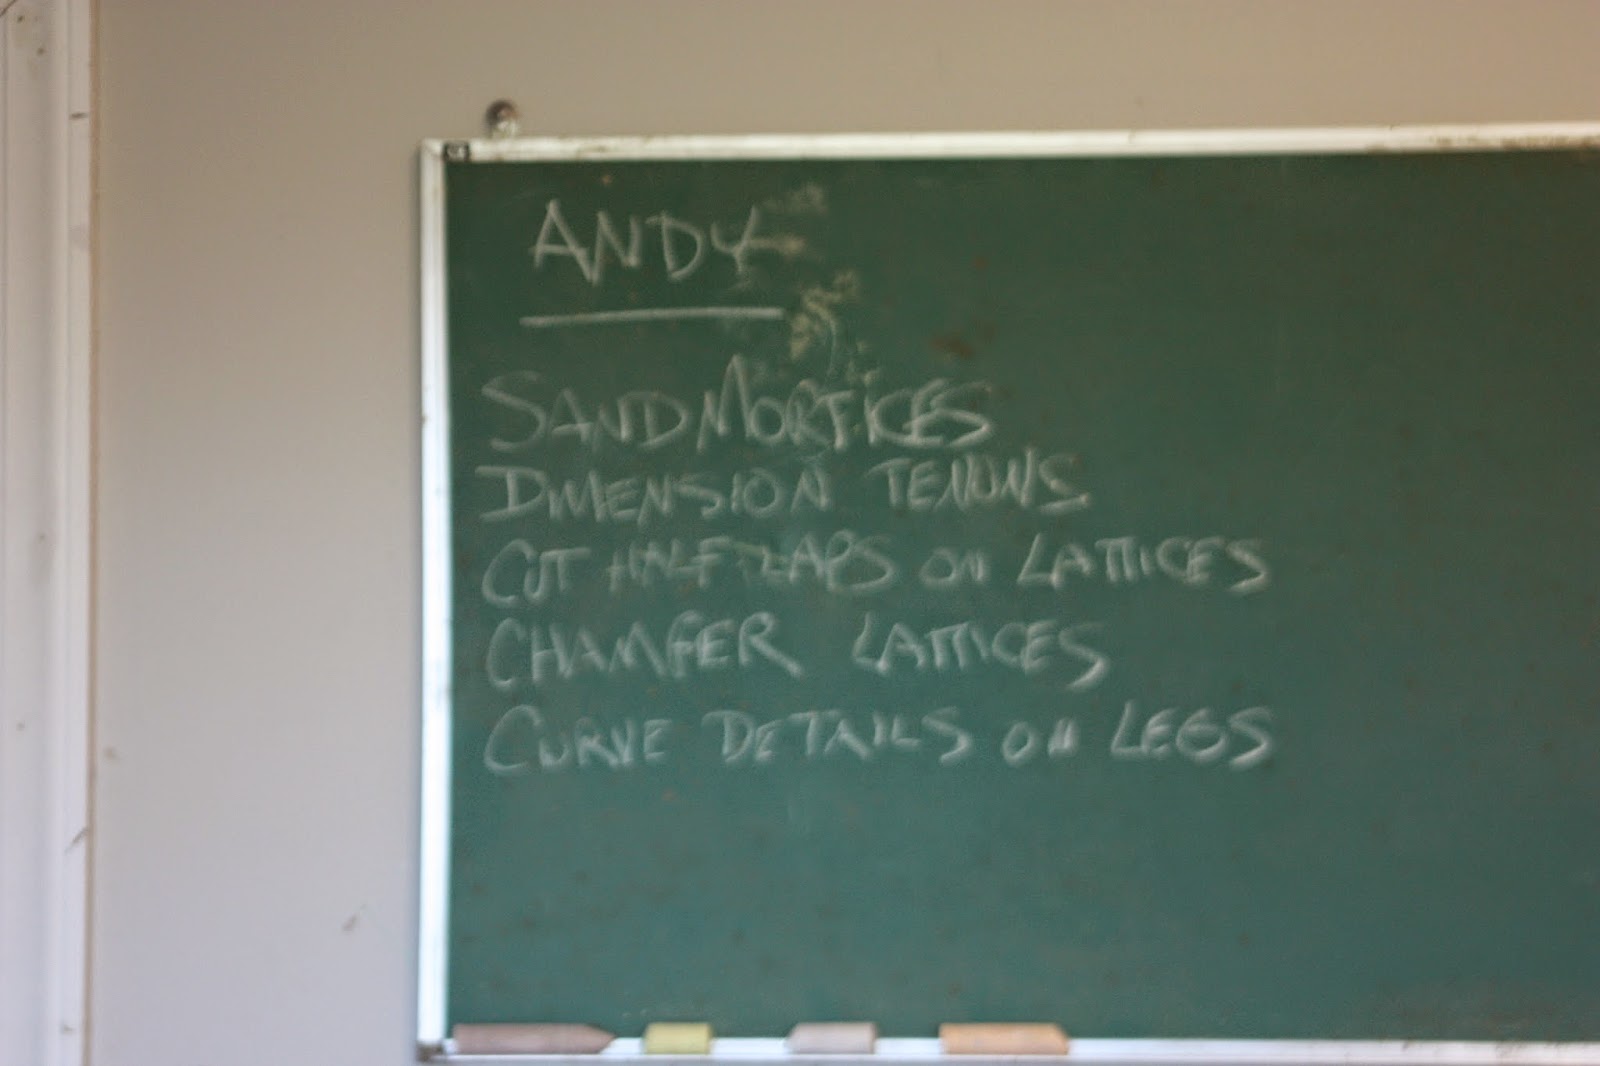 ANDY
SAND MORTICES
DIMENSION TENONS
CUT HALF-LAPS ON LATTICES
CHAMFER LATTICES
CURVE DETAILS ON LEGS